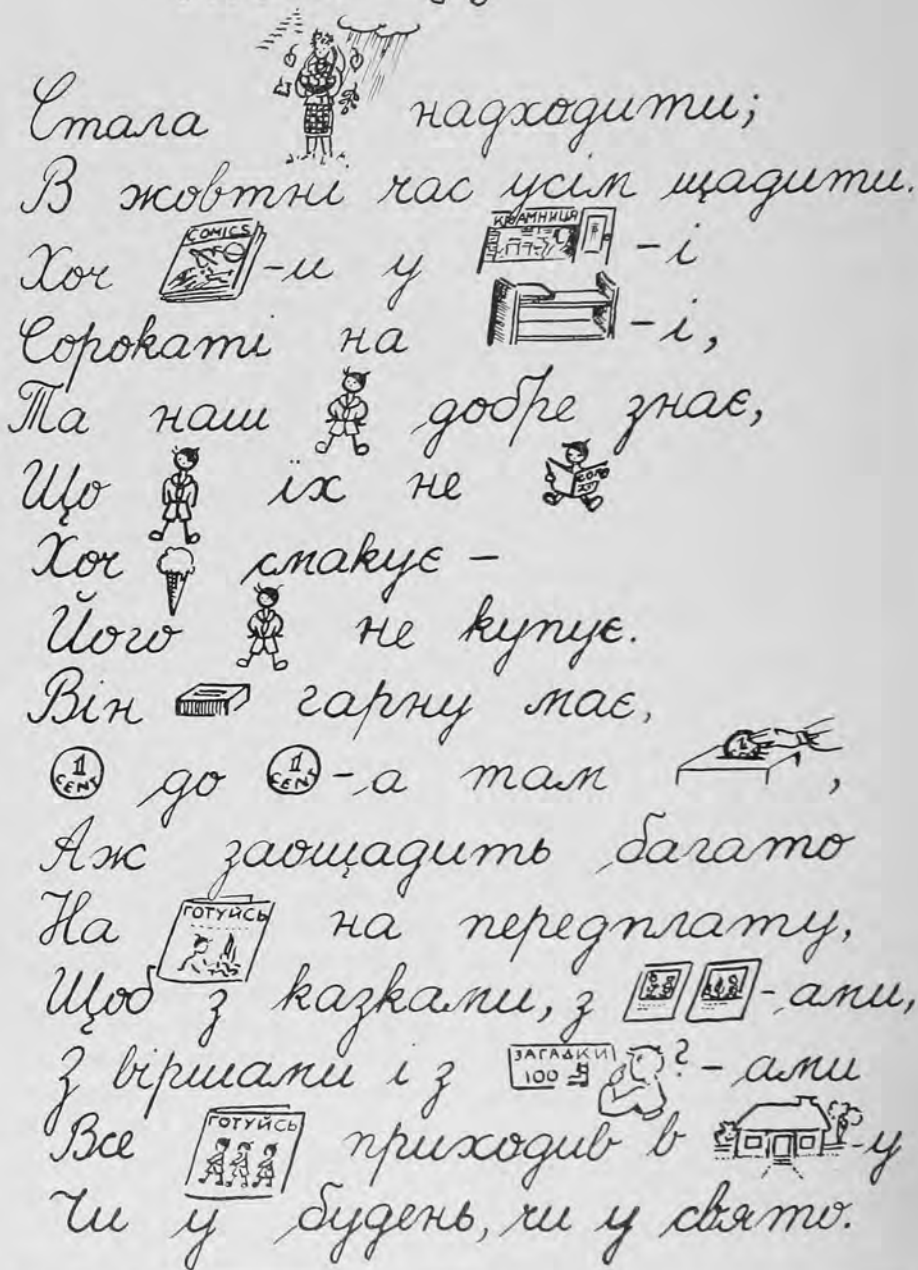 Стала надходити;
В жовтні час усім щадити.
Хоч COMICS -и у КРАМНИЦЯ -і
Сорокаті на -і,
Та наш добре знає,
Що їх не
Хоч смакує –
Його не купує.
Він гарну має,
1 CENT до 1 CENT -а там ,
Аж заощадить багато
На ГОТУЙСЬ на передплату,
Щоб з казками, з -ами,
З віршами і з ЗАГАДКИ 100 ? - ами
Все ГОТУЙСЬ приходив в -у
Чи у будень, чи у свято.